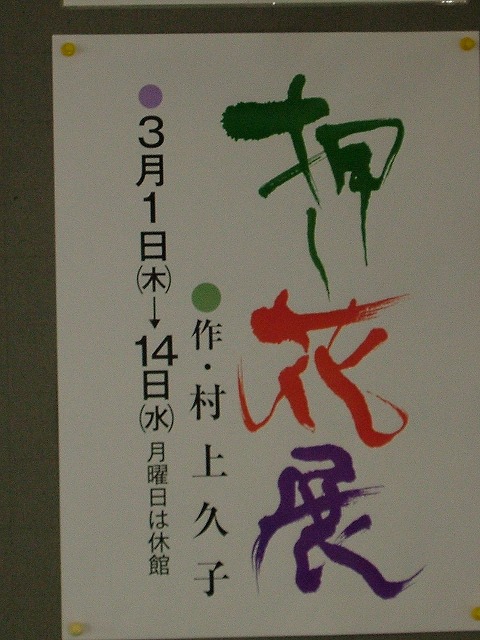 押し花展
作・村上久子
3月1日(木)→14日(水) 月曜日は休館